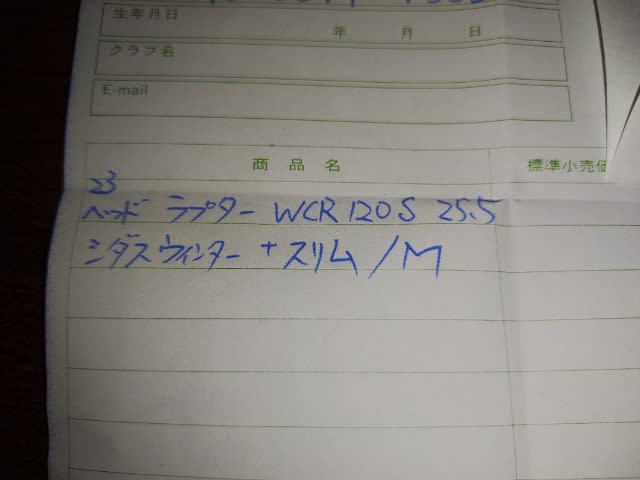 生年月日 年 月 日
クラブ名
E-mail
商品名 標準小売価
23
ヘッド ラプター WCR 120S 25.5
シダス ウィンター + スリム / M